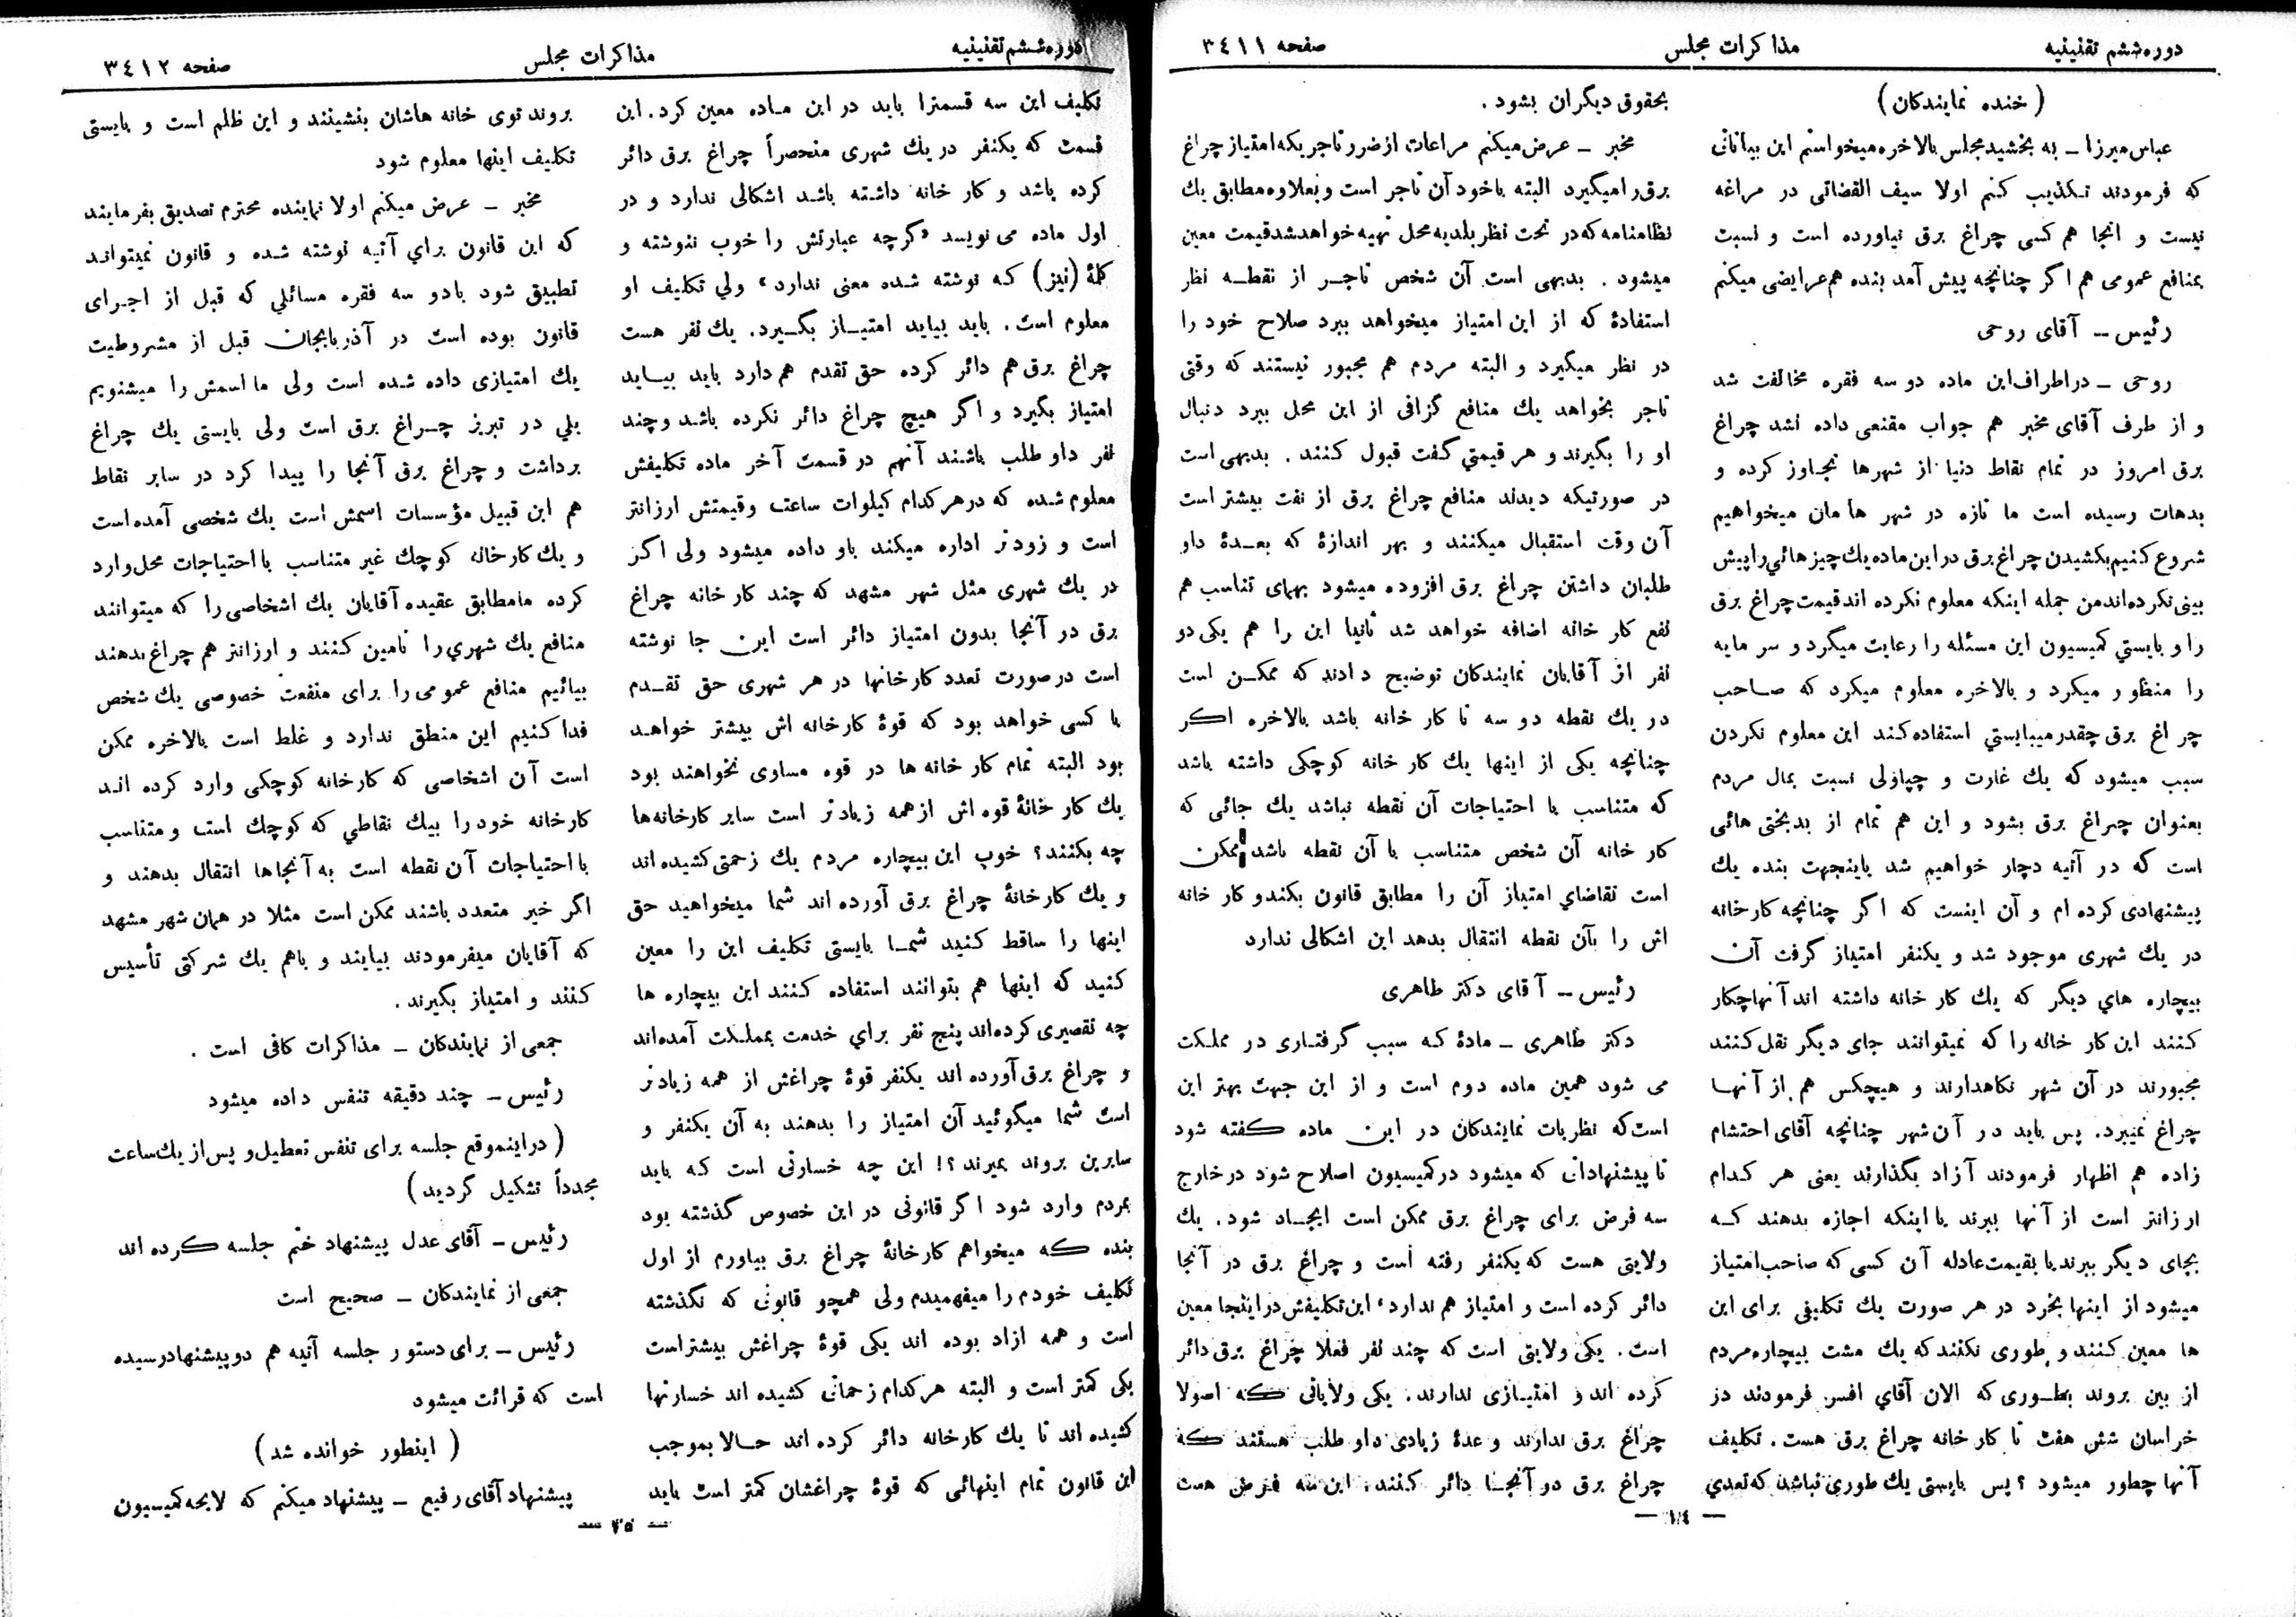 دوره ششم تقنینیه
مذاکرات مجلس
صفحه ۳٤۱۱
( خنده نمایندکان )
عباس میرزا ــ به بخشید مجلس بالاخره میخواستم این بیاناتی
که فرمودند تکذیب کنم اولا سیف القضاتی در مراغه
نیست و انجا هم کسی چراغ برق نیاورده است و نسبت
بمنافع عمومی هم اکر چنانچه پیش آمد بنده هم عرایضی میکنم
رئیس ــ آقای روحی
روحی ــ در اطراف این ماده دو سه فقره مخالفت شد
و از طرف آقای مخبر هم جواب مقنعی داده نشد چراغ
برق امروز در تمام نقاط دنیا از شهرها تجاوز کرده و
بدهات رسیده است ما تازه در شهر ها مان میخواهیم
شروع کنیم بکشیدن چراغ برق در این ماده یك چیز هائی را پیش
بینی نکرده اند من جمله اینکه معلوم نکرده اند قیمت چراغ برق
را و بایستي کمیسیون این مسئله را رعایت میگرد و سر مایه
را منظور میکرد و بالاخره معلوم میکرد که صاحب
چراغ برق چقدر میبایستي استفاده کند این معلوم نکردن
سبب میشود که یك غارت و چپاولی نسبت بمال مردم
بعنوان چراغ برق بشود و این هم تمام از بدبختی هائی
است که در آتیه دچار خواهیم شد باینجهت بنده یك
پیشنهادی کرده ام و آن اینست که اگر چنانچه کارخانه
در یك شهری موجود شد و یکنفر امتیاز گرفت آن
بیچاره هاي دیگر که یك کار خانه داشته اند آنها چکار
کنند این کار خانه را که نمیتوانند جای دیگر نقل کنند
مجبورند در آن شهر نکاهدارند و هیچکس هم از آنها
چراغ نمیبرد. پس باید در آن شهر چنانچه آقای احتشام
زاده هم اظهار فرمودند آزاد بگذارند یعنی هر کدام
ارزانتر است از آنها ببرند یا اینکه اجازه بدهند که
بجای دیگر ببرند یا بقیمت عادله آن کسی که صاحب امتیاز
میشود از اینها بخرد در هر صورت یك تکلیفی برای این
ها معین کنند و طوری نکنند که یك مشت بیچاره مردم
از بین بروند بطوری که الان آقاي افسر فرمودند در
خراسان شش هفت تا کار خانه چراغ برق هست . تکلیف
آنها چطور میشود ؟ پس بایستی یك طوری نباشد که تعدي
بحقوق دیگران بشود .
مخبر ــ عرض میکنم مراعات از ضرر تاجریکه امتیاز چراغ
برق را میگیرد البته با خود آن تاجر است و بعلاوه مطابق یك
نظامنامه که در تحت نظر بلدیه محل تهیه خواهد شد قیمت معین
میشود . بدیهی است آن شخص تاجر از نقطه نظر
استفادهٔ که از این امتیاز میخواهد ببرد صلاح خود را
در نظر میگیرد و البته مردم هم مجبور نیستند که وقتی
تاجر بخواهد یك منافع گزافی از این محل ببرد دنبال
او را بگیرند و هر قیمتي گفت قبول کنند . بدیهی است
در صورتیکه دیدند منافع چراغ برق از نفت بیشتر است
آن وقت استقبال میکنند و بهر اندازهٔ که بعدهٔ داو
طلبان داشتن چراغ برق افزوده میشود بهمای تناسب هم
نفع کار خانه اضافه خواهد شد ثانیا این را هم یکی دو
نفر از آقایان نمایندکان توضیح دادند که ممکن است
در یك نقطه دو سه تا کار خانه باشد بالاخره اکر
چنانچه یکی از اینها یك کار خانه کوچکی داشته باشد
که متناسب با احتیاجات آن نقطه نباشد یك جائی که
کار خانه آن شخص متناسب با آن نقطه باشد ممکن
است تقاضاي امتیاز آن را مطابق قانون بکند و کار خانه
اش را بآن نقطه انتقال بدهد این اشکالی ندارد
رئیس ــ آقای دکتر طاهری
دکتر طاهری ــ مادهٔ که سبب گرفتاری در مملکت
می شود همین ماده دوم است و از این جهت بهتر این
است که نظریات نمایندکان در این ماده کفته شود
تا پیشنهاداتی که میشود در کمیسیون اصلاح شود در خارج
سه فرض برای چراغ برق ممکن است ایجاد شود . یك
ولایتی هست که یکنفر رفته است و چراغ برق در آنجا
دائر کرده است و امتیاز هم ندارد، این تکلیفش در اینجا معین
است . یکی ولایتی است که چند نفر فعلا چراغ برق دائر
کرده اند و امتیازی ندارند . یکی ولایاتی که اصولا
چراغ برق ندارند و عدهٔ زیادی داو طلب هستند که
چراغ برق در آنجا دائر کنند. این سه فرض هست
ــ ۱٤ ــ
دوره ششم تقنینیه
مذاکرات مجلس
صفحه ۳٤۱۲
تکلیف این سه قسمترا باید در این ماده معین کرد . این
قسمت که یکنفر در یك شهری منحصراً چراغ برق دائر
کرده باشد و کار خانه داشته باشد اشکالی ندارد و در
اول ماده می نویسد «گرچه عبارتش را خوب ننوشته و
کلمهٔ (نیز) که نوشته شده معنی ندارد» ولي تکلیف او
معلوم است . باید بیاید امتیاز بگیرد . یك نفر هست
چراغ برق هم دائر کرده حق تقدم هم دارد باید بیاید
امتیاز بگیرد و اگر هیچ چراغ دائر نکرده باشد و چند
نفر داو طلب باشند آنهم در قسمت آخر ماده تکلیفش
معلوم شده که در هر کدام کیلوات ساعت و قیمتش ارزانتر
است و زودتر اداره میکند باو داده میشود ولی اگر
در یك شهری مثل شهر مشهد که چند کار خانه چراغ
برق در آنجا بدون امتیاز دائر است این جا نوشته
است در صورت تعدد کارخانها در هر شهری حق تقدم
با کسی خواهد بود که قوهٔ کارخانه اش بیشتر خواهد
بود البته تمام کار خانه ها در قوه مساوی نخواهند بود
یك کار خانهٔ قوه اش از همه زیادتر است سایر کارخانه ها
چه بکنند ؟ خوب این بیچاره مردم یك زحمتی کشیده اند
و یك کارخانهٔ چراغ برق آورده اند شما میخواهید حق
اینها را ساقط کنید شما بایستی تکلیف این را معین
کنید که اینها هم بتوانند استفاده کنند این بیچاره ها
چه تقصیری کرده اند پنج نفر براي خدمت بمملکت آمده اند
و چراغ برق آورده اند یکنفر قوهٔ چراغش از همه زیادتر
است شما میگوئید آن امتیاز را بدهند به آن یکنفر و
سایرین بروند بمیرند ؟! این چه خسارتی است که باید
بمردم وارد شود اگر قانونی در این خصوص گذشته بود
بنده که میخواهم کارخانهٔ چراغ برق بیاورم از اول
تکلیف خودم را میفهمیدم ولی همچو قانونی که نگذشته
است و همه ازاد بوده اند یکی قوهٔ چراغش بیشتر است
یکی کمتر است و البته هر کدام زحماتی کشیده اند خسارتها
کشیده اند تا یك کارخانه دائر کرده اند حالا بموجب
این قانون تمام اینهائی که قوهٔ چراغشان کمتر است باید
بروند توی خانه هاشان بنشینند و این ظلم است و بایستی
تکلیف اینها معلوم شود
مخبر ــ عرض میکنم اولا نماینده محترم تصدیق بفرمایند
که این قانون براي آتیه نوشته شده و قانون نمیتواند
تطبیق شود با دو سه فقره مسائلي که قبل از اجرای
قانون بوده است در آذربایجان قبل از مشروطیت
یك امتیازی داده شده است ولی ما اسمش را میشنویم
بلي در تبریز چراغ برق است ولی بایستی یك چراغ
برداشت و چراغ برق آنجا را پیدا کرد در سایر نقاط
هم این قبیل مؤسسات اسمش است یك شخصی آمده است
و یك کارخانه کوچك غیر متناسب با احتیاجات محل وارد
کرده ما مطابق عقیده آقایان یك اشخاصی را که میتوانند
منافع یك شهري را تامین کنند و ارزانتر هم چراغ بدهند
بیائیم منافع عمومی را برای منفعت خصوصی یك شخص
فدا کنیم این منطق ندارد و غلط است بالاخره ممکن
است آن اشخاصی که کارخانه کوچکی وارد کرده اند
کارخانه خود را بیك نقاطي که کوچك است و متناسب
با احتیاجات آن نقطه است به آنجاها انتقال بدهند و
اگر خیر متعدد باشند ممکن است مثلا در همان شهر مشهد
که آقایان میفرمودند بیایند و باهم یك شرکتی تأسیس
کنند و امتیاز بگیرند .
جمعی از نمایندکان ــ مذاکرات کافی است .
رئیس ــ چند دقیقه تنفس داده میشود
( در اینموقع جلسه برای تنفس تعطیل و پس از یك ساعت
مجدداً تشکیل گردید )
رئیس ــ آقای عدل پیشنهاد ختم جلسه کرده اند
جمعی از نمایندکان ــ صحیح است
رئیس ــ برای دستور جلسه آتیه هم دو پیشنهاد رسیده
است که قرائت میشود
( اینطور خوانده شد )
پیشنهاد آقای رفیع ــ پیشنهاد میکنم که لایحه کمیسیون